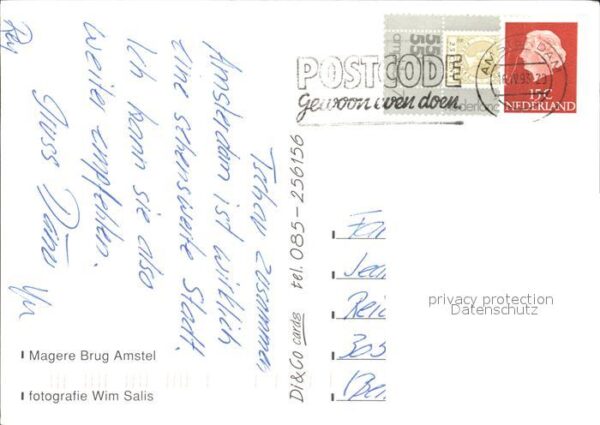 Tschau zusammen
Amsterdam ist wirklich
eine sehenswerte Stadt.
Ich kann sie also
weiter empfehlen.
Gruss
Di&Co cards tel. 085-256156
Magere Brug Amstel
fotografie Wim Salis
POSTCODE
Gewoon even doen
AMSTERDAM
55
15 C
NEDERLAND
Jea
Rei
305
privacy protection
Datenschutz